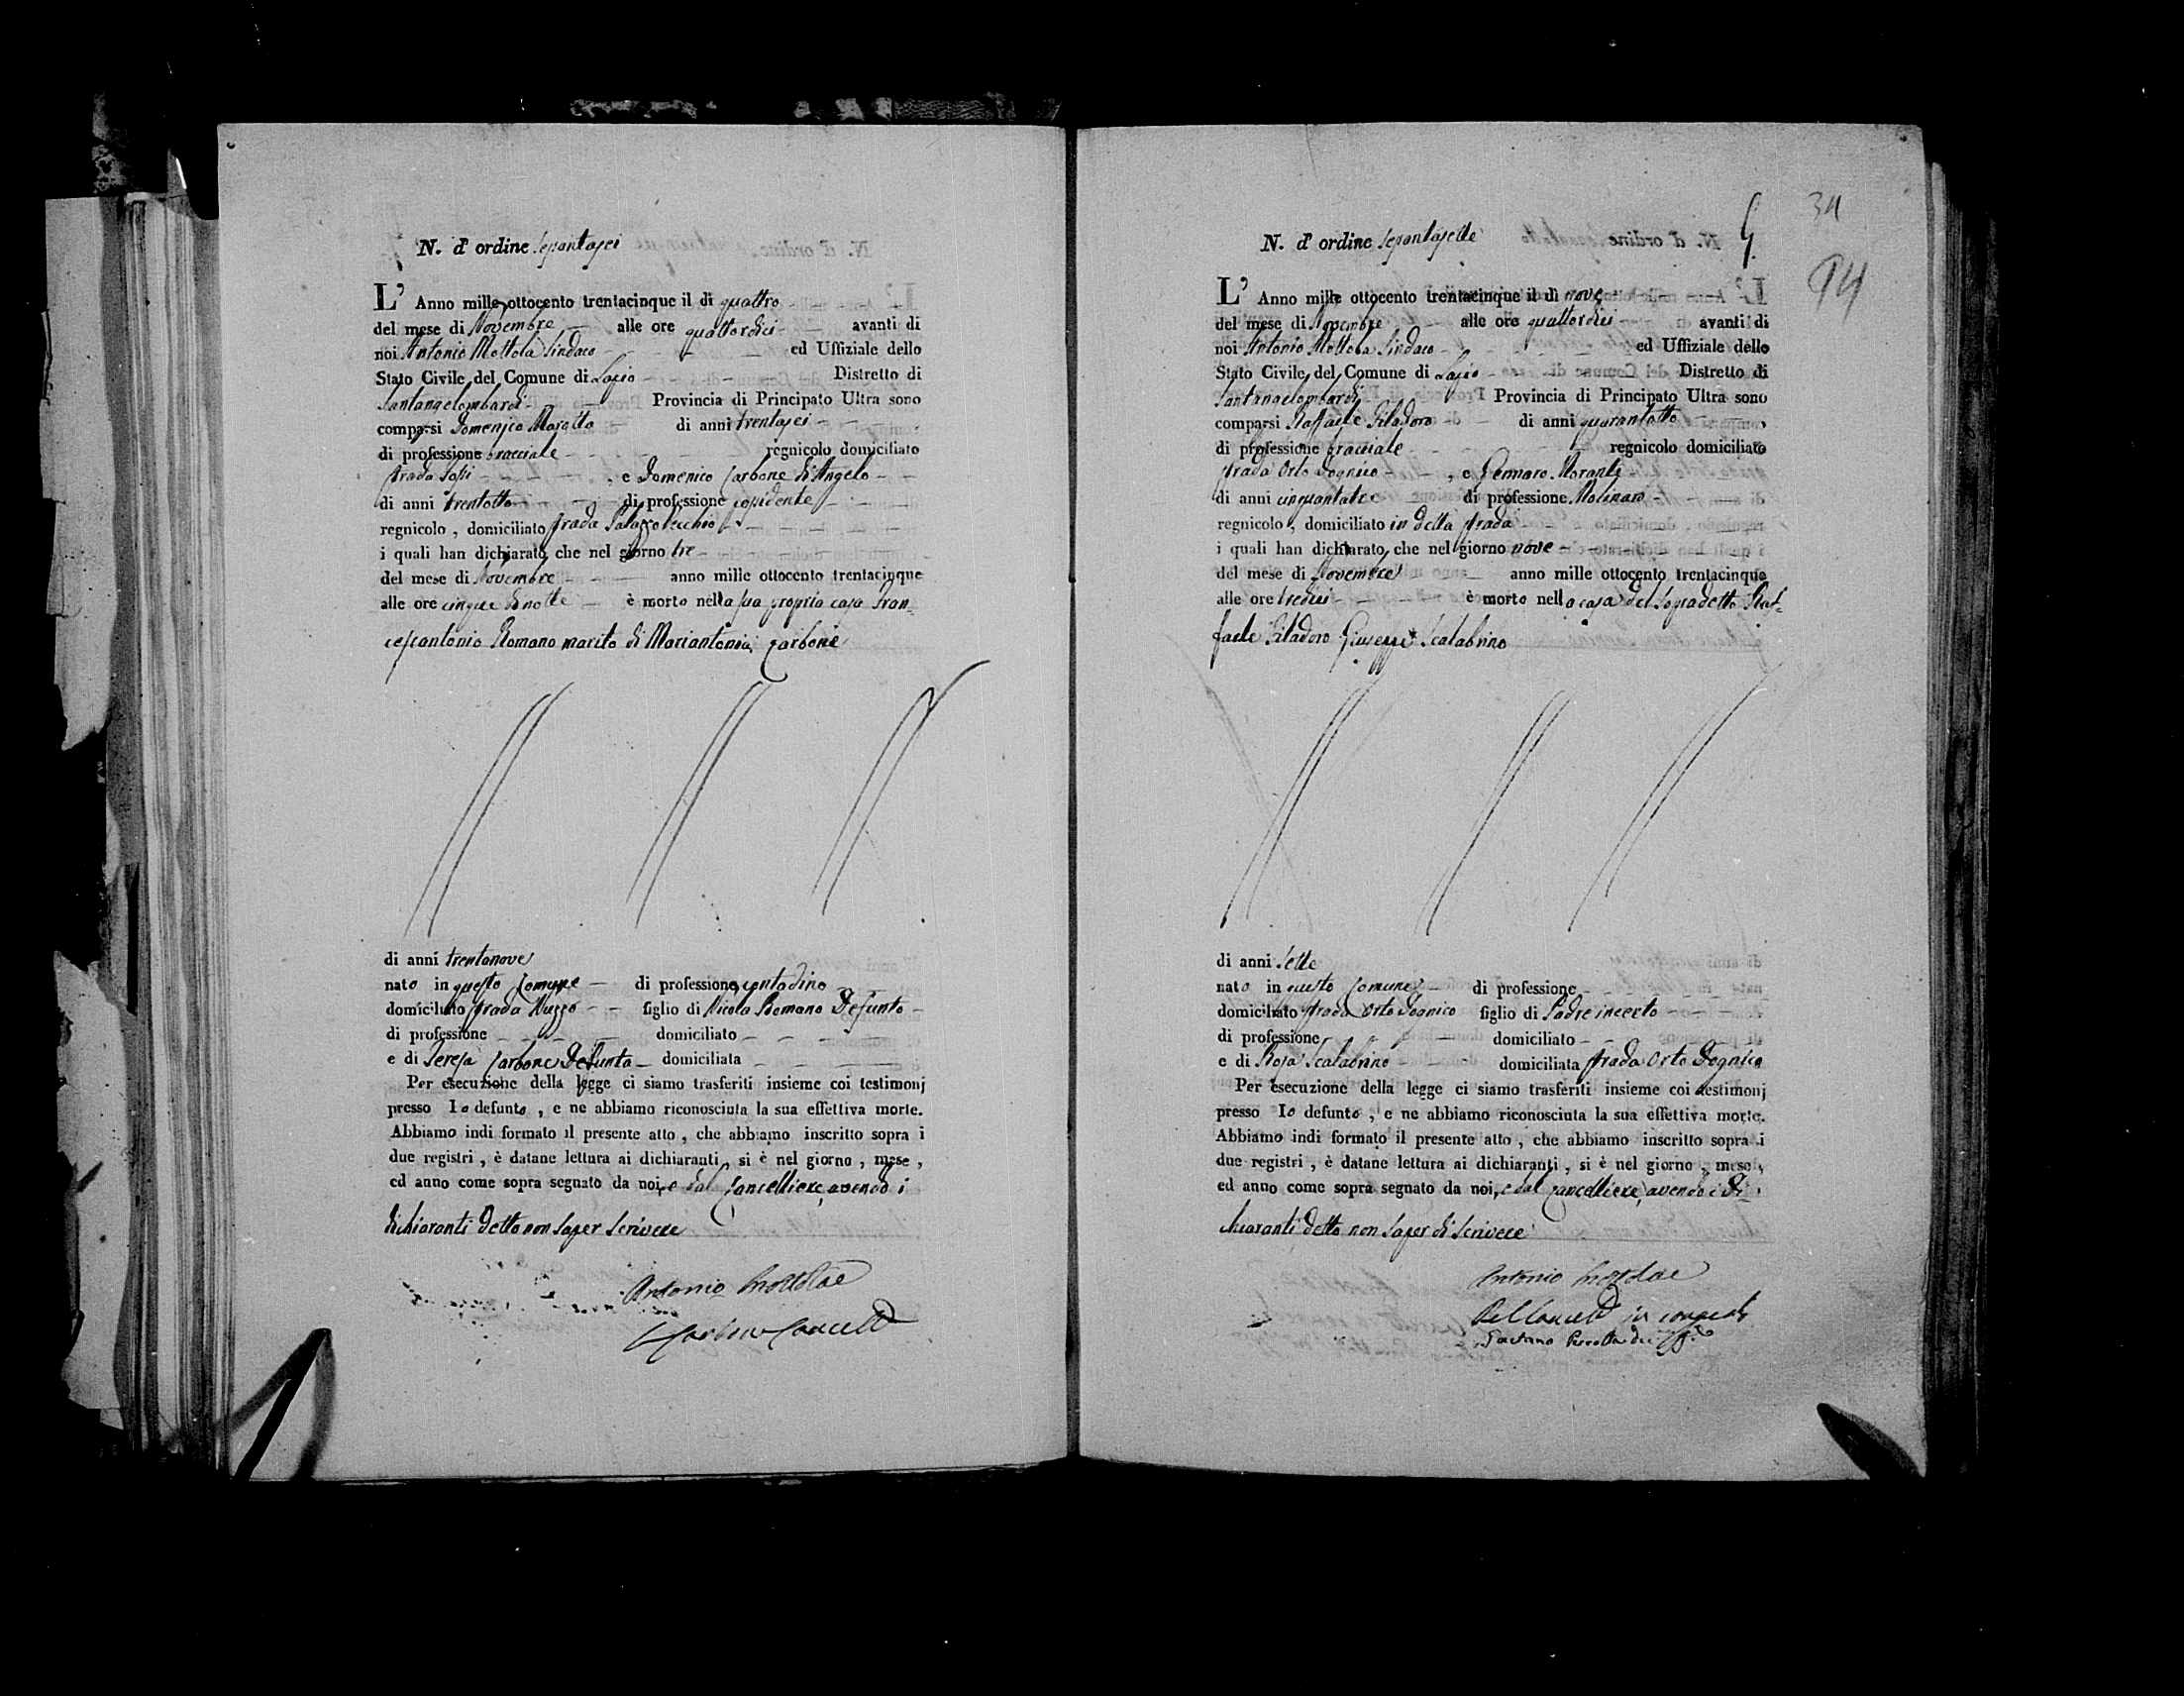 N. d' ordine Sessantasei
L' Anno mille ottocento trentacinque il dì quattro
del mese di Novembre alle ore quattordici avanti di
noi Antonio Mottola Sindaco ed Uffiziale dello
Stato Civile del Comune di Lapio Distretto di
Santangelombardi Provincia di Principato Ultra sono
comparsi Domenico di anni trentasei
di professione bracciale regnicolo domiciliato
strada , e Domenico Carbone di Angelo
di anni trentotto di professione
regnicolo , domiciliato strada Palazzo vecchio
i quali han dichiarato, che nel giorno tre
del mese di Novembre anno mille ottocento trentacinque
alle ore cinque di notte è morto nella sua propria casa Fran-
cescantonio Romano marito di Mariantonia Carbone
di anni trentanove
nato in questo Comune di professione contadino
domiciliato strada Nuzzo figlio di Nicola Romano Defunto
di professione domiciliato
e di Teresa Carbone Defunta domiciliata
Per esecuzione della legge ci siamo trasferiti insieme coi testimonj
presso lo defunto , e ne abbiamo riconosciuta la sua effettiva morte.
Abbiamo indi formato il presente atto , che abbiamo inscritto sopra i
due registri , è datane lettura ai dichiaranti , si è nel giorno , mese ,
ed anno come sopra segnato da noi, e dal Cancelliere, avendo i
dichiaranti detto non saper scrivere
Antonio Mottola
N. d' ordine Sessantasette
34
94
L' Anno mille ottocento trentacinque il dì nove
del mese di Novembre alle ore quattordici avanti di
noi Antonio Mottola Sindaco ed Uffiziale dello
Stato Civile del Comune di Lapio Distretto di
Santangelombardi Provincia di Principato Ultra sono
comparsi Raffaele Filadoro di anni quarantotto
di professione bracciale regnicolo domiciliato
strada Orto Dognico , e Gennaro Morante
di anni cinquantatre di professione Molinaro
regnicolo , domiciliato in detta strada
i quali han dichiarato, che nel giorno nove
del mese di Novembre anno mille ottocento trentacinque
alle ore tredici è morto nella casa del sopradetto Raf-
faele Filadoro Giuseppe Scalabrino
di anni sette
nato in questo Comune di professione
domiciliato strada Orto Dognico figlio di Padre incerto
di professione domiciliato
e di Rosa Scalabrino domiciliata strada Orto Dognico
Per esecuzione della legge ci siamo trasferiti insieme coi testimonj
presso lo defunto , e ne abbiamo riconosciuta la sua effettiva morte.
Abbiamo indi formato il presente atto , che abbiamo inscritto sopra i
due registri , è datane lettura ai dichiaranti , si è nel giorno , mese ,
ed anno come sopra segnato da noi, e dal Cancelliere, avendo i di-
chiaranti detto non saper di scrivere
Antonio Mottola
Pel in congedo
Gaetano